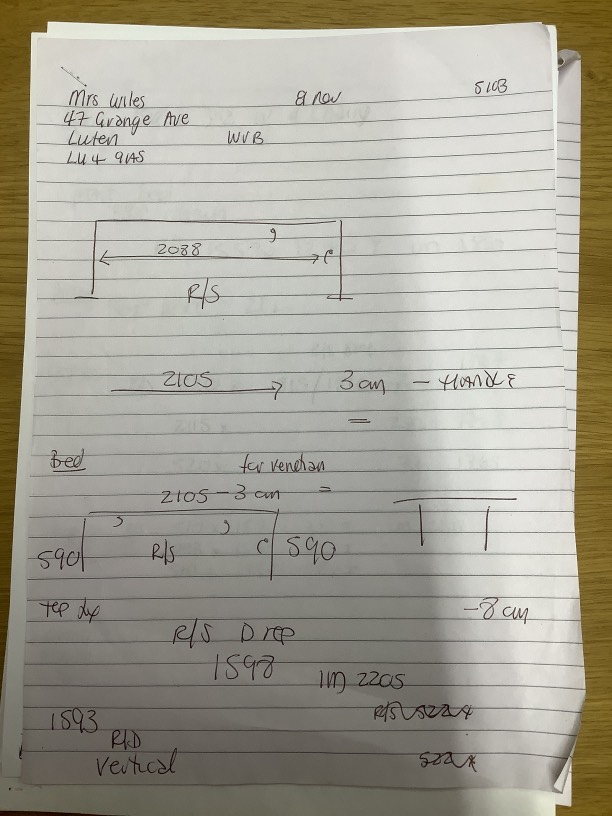 Mrs Wiles 8 nov 5103
47 Grange Ave
Luten WVB
LU4 9AS
2088
R/S
2105 3 cm - HANDLE
Bed for venetian
2105 - 3 cm =
590 R/S 590
top -8 cm
R/S Drop
1598
1m 2205
1593
R/D
Vertical